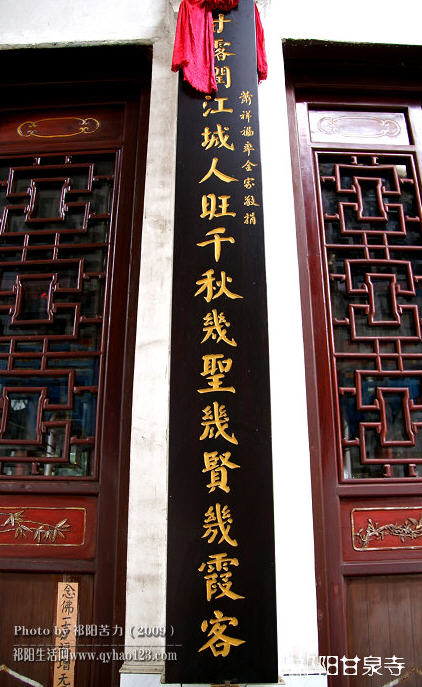 露潤江城人旺千秋幾聖幾賢幾霞客
蕭祥福率全家敬捐
念佛一
Photo by 祁阳苦力（2009）
祁阳生活网www.qyhao123.com
祁阳甘泉寺